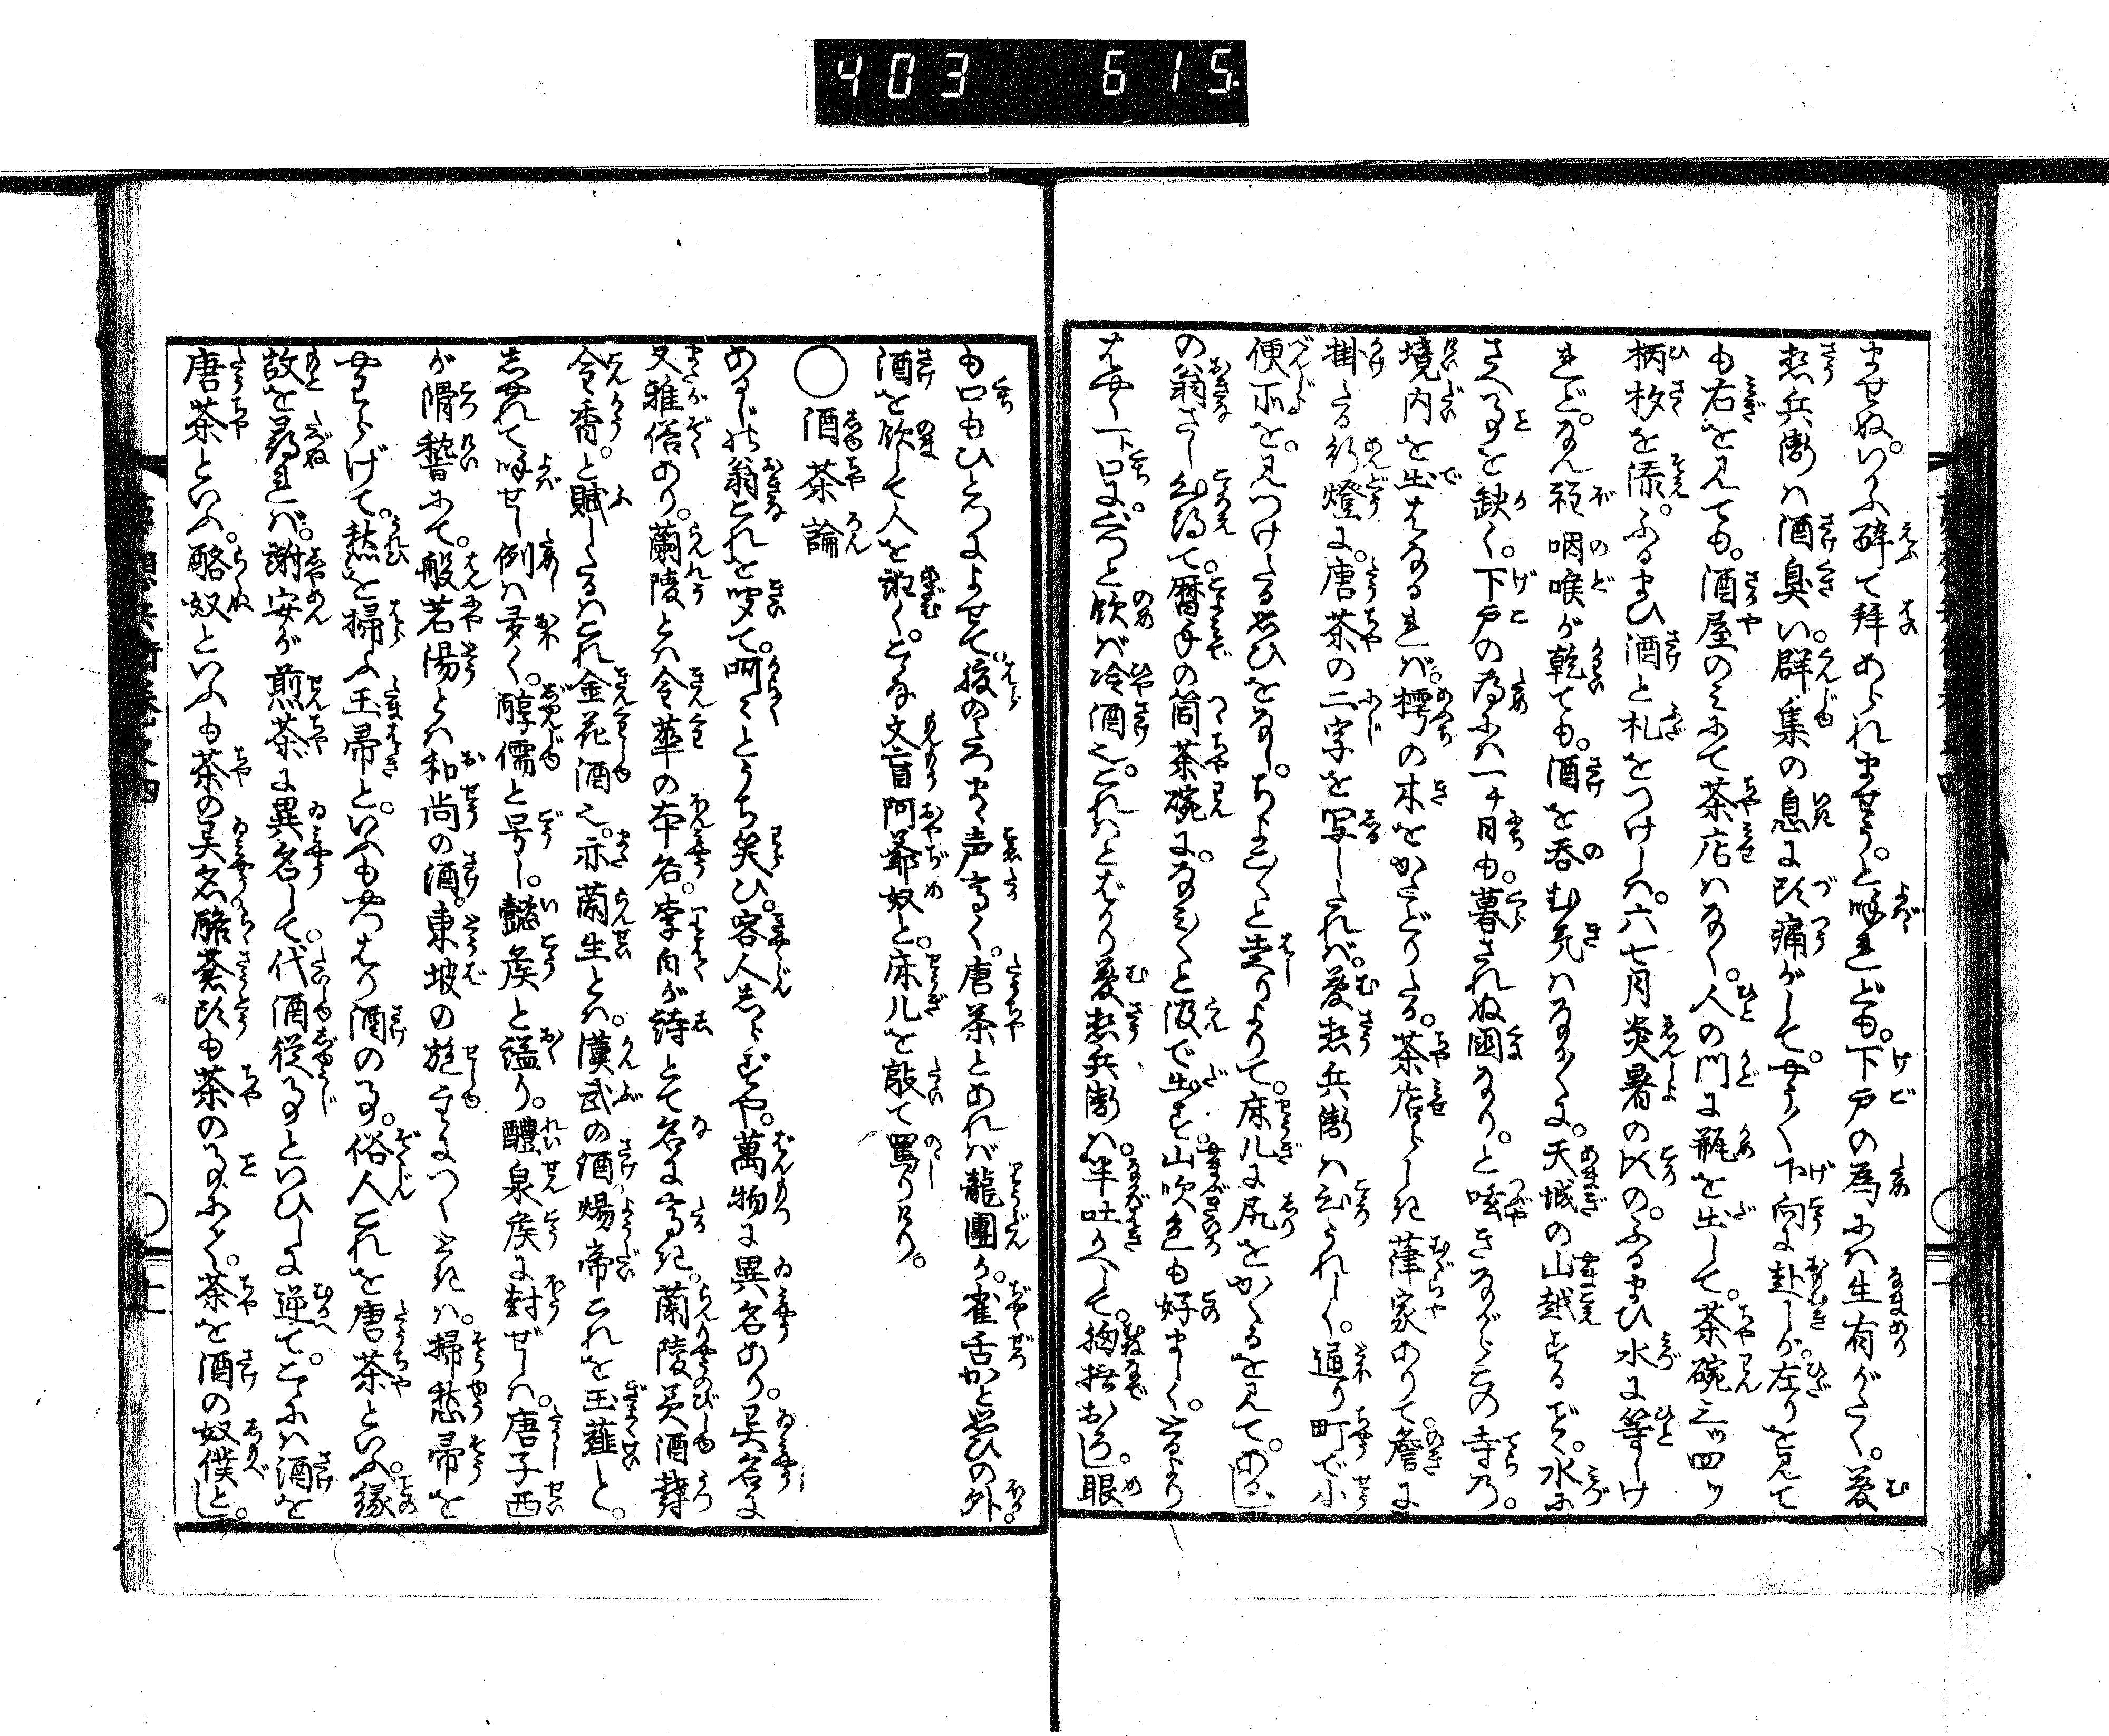 403 615.
ませぬ。いかに酔て拝あられませう。と呼れども。下戸の為には生有がたく。夢
想兵衛は酒臭い。群集の息に頭痛がして。やうやく下向に赴しが。左りを見て
も右を見ても。酒屋のみにて茶店はなし。人の門に瓶を出して。茶碗三ッ四ッ
柄杓を添。ふるまひ酒と札をつけしは。六七月炎暑の比の。ふるまひ水に等しけ
れど。なん程咽喉が乾ても。酒を呑む気はなかりしに。天城の山越するごと。水に
さへ事を缺く。下戸の為には一チ日も。暮されぬ国なり。と呟きながらこの寺の。
境内を出はなるれば。樗の木をかたどりたる。茶店らしき葎家ありて。簷に
掛たる行燈に。唐茶の二字を写したれば。夢想兵衛は心うれしく。通り町で小
便所を。見つけたる思ひをなし。ちよこちよこと走りよりて。床几に尻をかくるを見て。あるじ
の翁さし心得て。暦手の筒茶碗に。なみなみと汲で出す。山吹色も好ましく。言より
はやく一ト口に。ぐつと飲ば冷酒也。これはとばかり夢想兵衛は。半吐かへして。胸撫おろし。眼
も口もひとつによせて。腹のたつまま声高く。唐茶とあれば龍團か。雀舌かと思ひの外。
酒を飲して人を欺く。こな文盲阿爺奴と。床几を敲て罵りけり。
◯酒茶論
あるじの翁これを聞て。呵々とうち笑ひ。客人しらずや。萬物に異名あり。異名に
又雅俗あり。蘭陵とは令華の本名。李白が詩とて名に高き。蘭陵美酒鬱
金香。と賦したるはこれ金花酒也。亦蘭生とは。漢武の酒。煬帝これを玉薤と。
しやれて呼せし例は多く。醇儒と号し。懿侯と謚り。醴泉侯に封ぜしは。唐子西
が滑稽にて。般若湯とは和尚の酒。東坡の旋主につく云きは。掃愁帚を
やはらげて。愁を掃ふ玉帚と。いふもやつはり酒の事。俗人これを唐茶といふ。縁
故を尋れば。謝安が煎茶に異名して。代酒従事といひしに逆て。ここには酒を
唐茶といふ。酪奴といふも茶の異名。酪蒼頭も茶の事にて。茶を酒の奴僕とし。